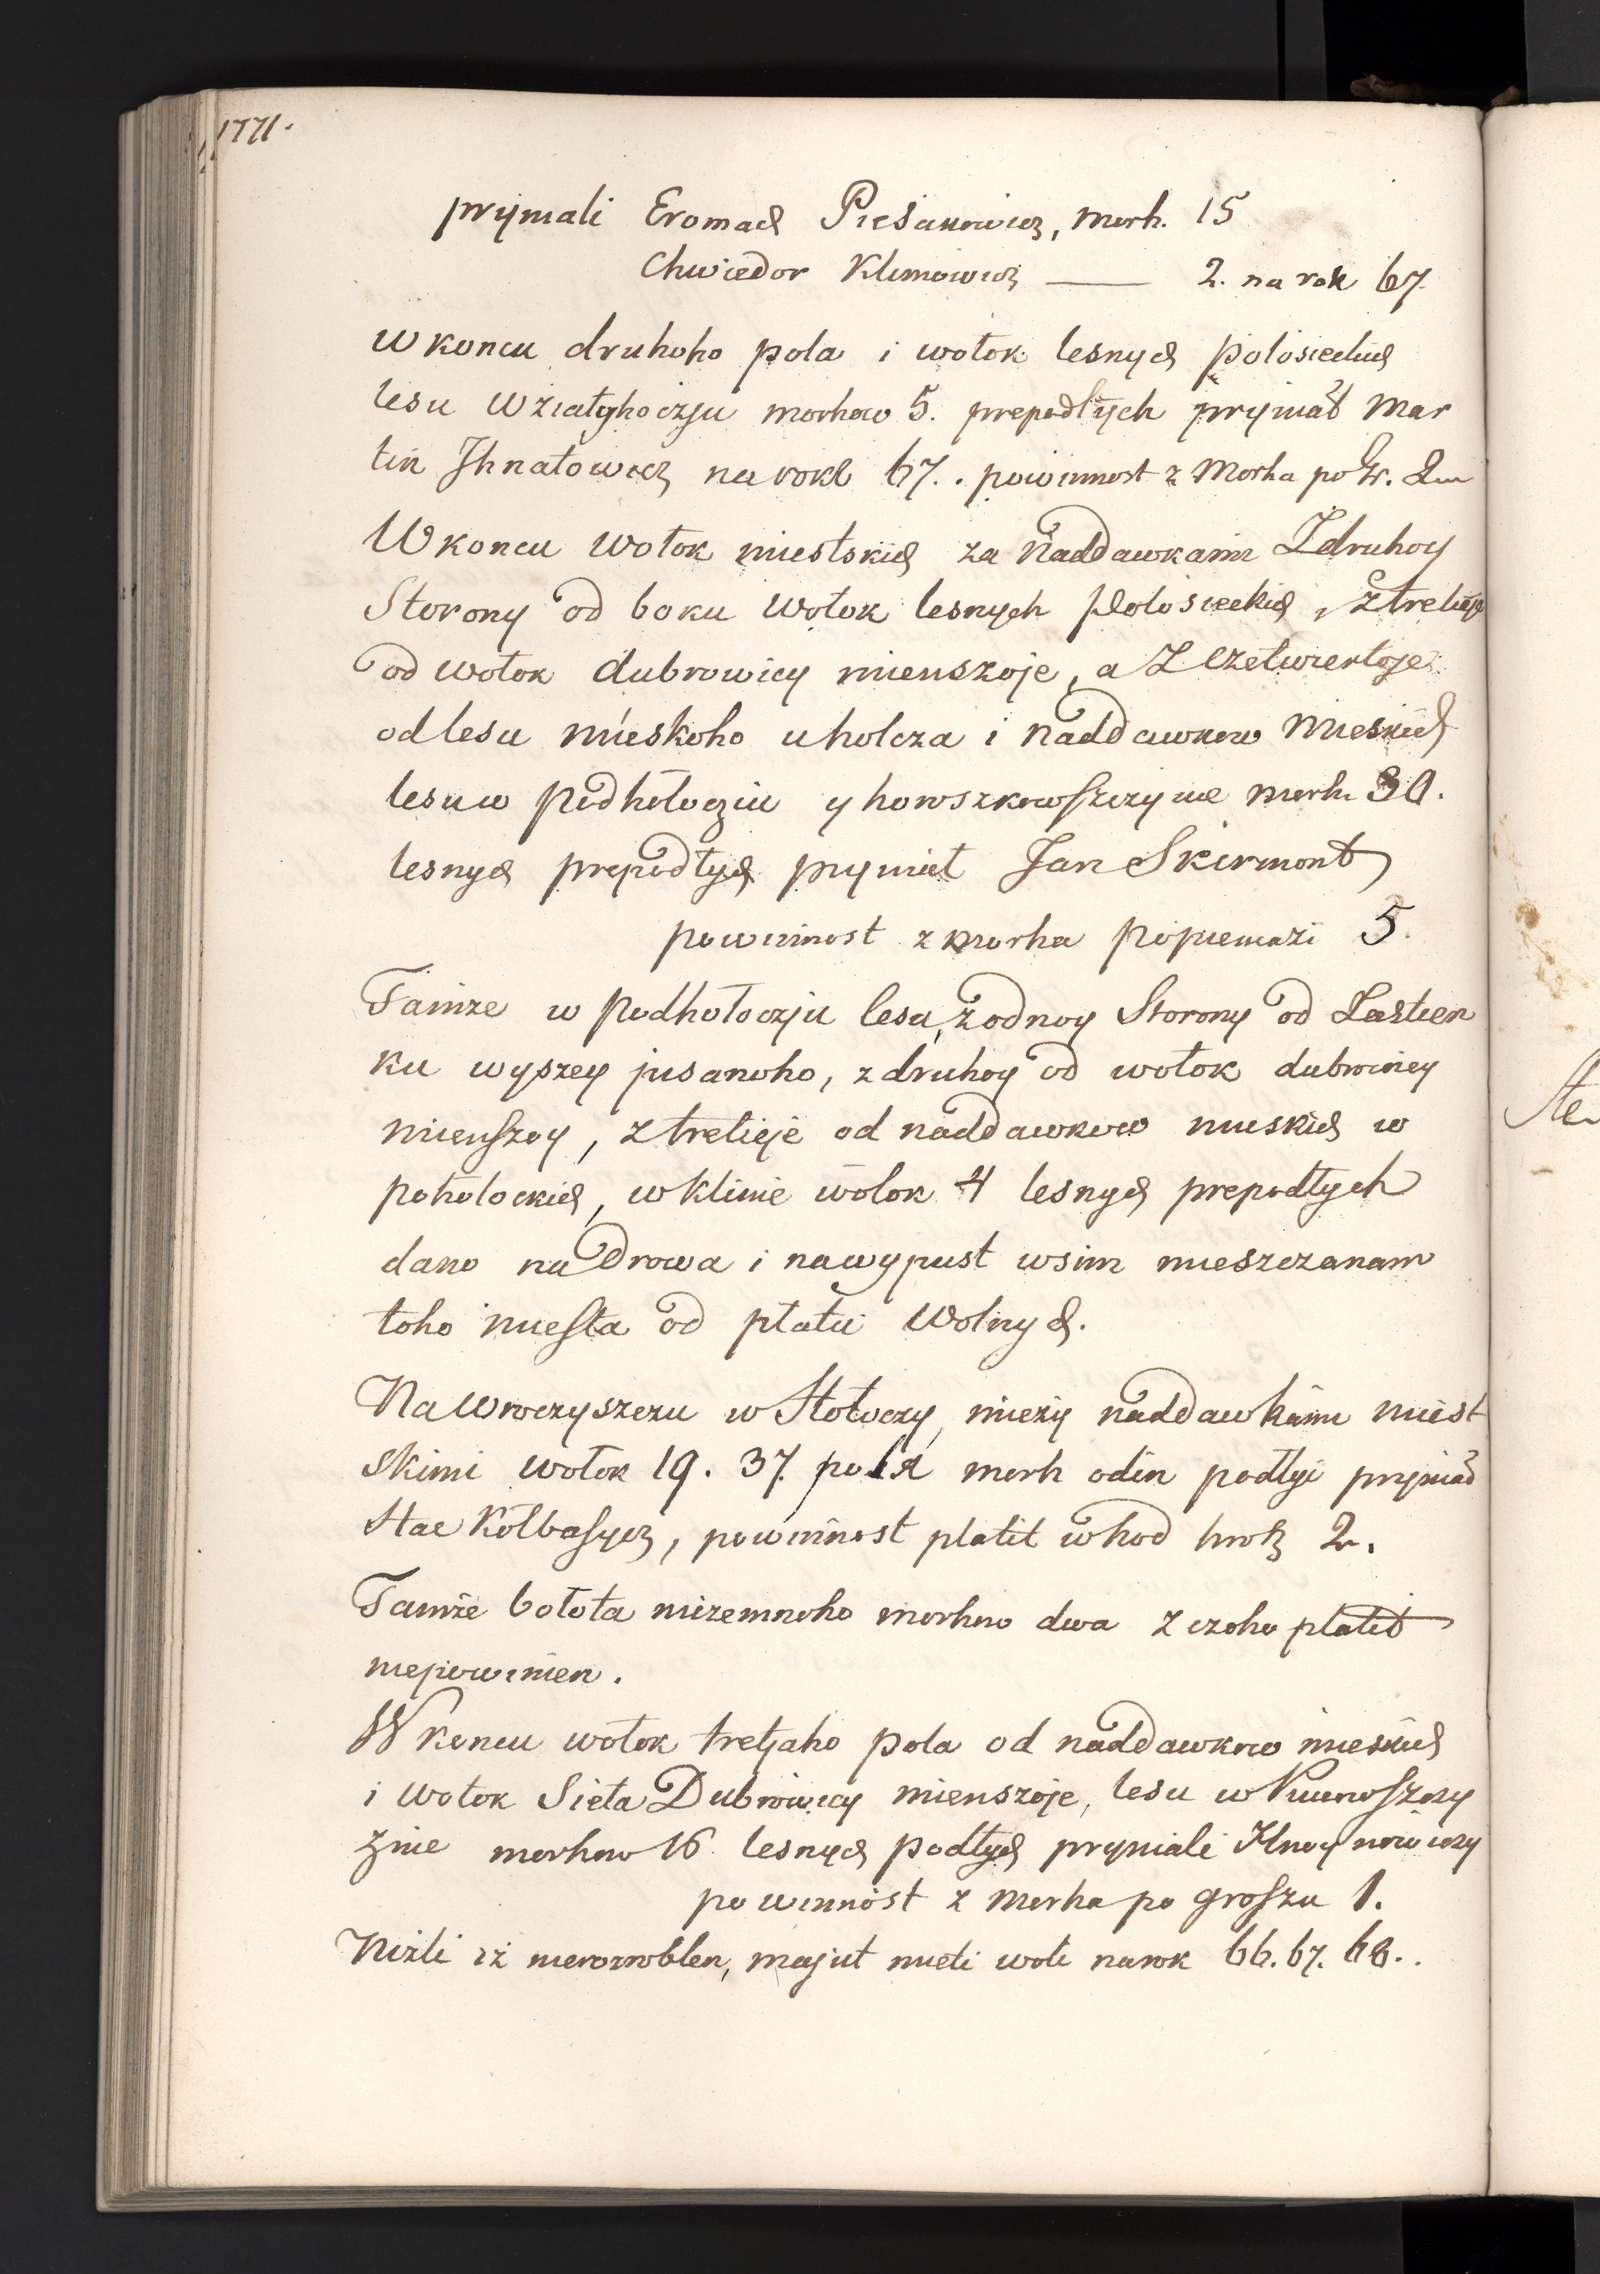 1771.
pryjmali Eromach Piesanowicz, morh. 15
Chwiedor Klimowicz —— 2. na rok 67.
w koncu druhoho pola i wołok lesnych połosieckich
lesu morhow 5. prepodłych pryniał Mar
tin Ihnatowicz na rok 67.. powinnost z Morha po Gr. 2
W koncu wołok miestskich za naddawkami Z druhoy
Storony od boku wołok lesnych Połosieckich, z tretieje
od wołok dubrowicy mienszoje, a Z czetwertoje
od lesu mieskoho uholcza i naddawkow mieskich
lesu w Podhołoczju y howszkowszczyme morh. 30.
lesnych prepodłych pryniał Jan Skirmont
powinnost z morha po pieniazi 5.
Tamże w Podhołoczju lesu, z odnoy Storony od Zastien
ku wyszey pisanoho, z druhoy od wołok dubrowicy
mienszoy, z tretieje od naddawkow mieskich w
połołockich, w klinie wołok 4 lesnych prepodłych
dano na drowa i na wypust wsim mieszczanam
toho miesta od płatu wolnych.
Na Wroczyszczu w Stołoczy, mieży naddawkami miest
skimi wołok 19. 37. pola morh odin podłyi pryniał
Stac Kołbasycz, powinnost płatit w hod hrosz 2.
Tamże bołota nizemnoho morhow dwa z czoho płatit
niepowinien.
W koncu wołok tretjaho pola od naddawkow mieskich
i wołok Sieła Dubrowicy mienszoje, lesu w
znie morhow 16 lesnych podłych pryniali
powinnost z Morha po groszu 1.
Niżli iż nierozroblen, majut mieti woli na rok 66. 67. 68..
Ste